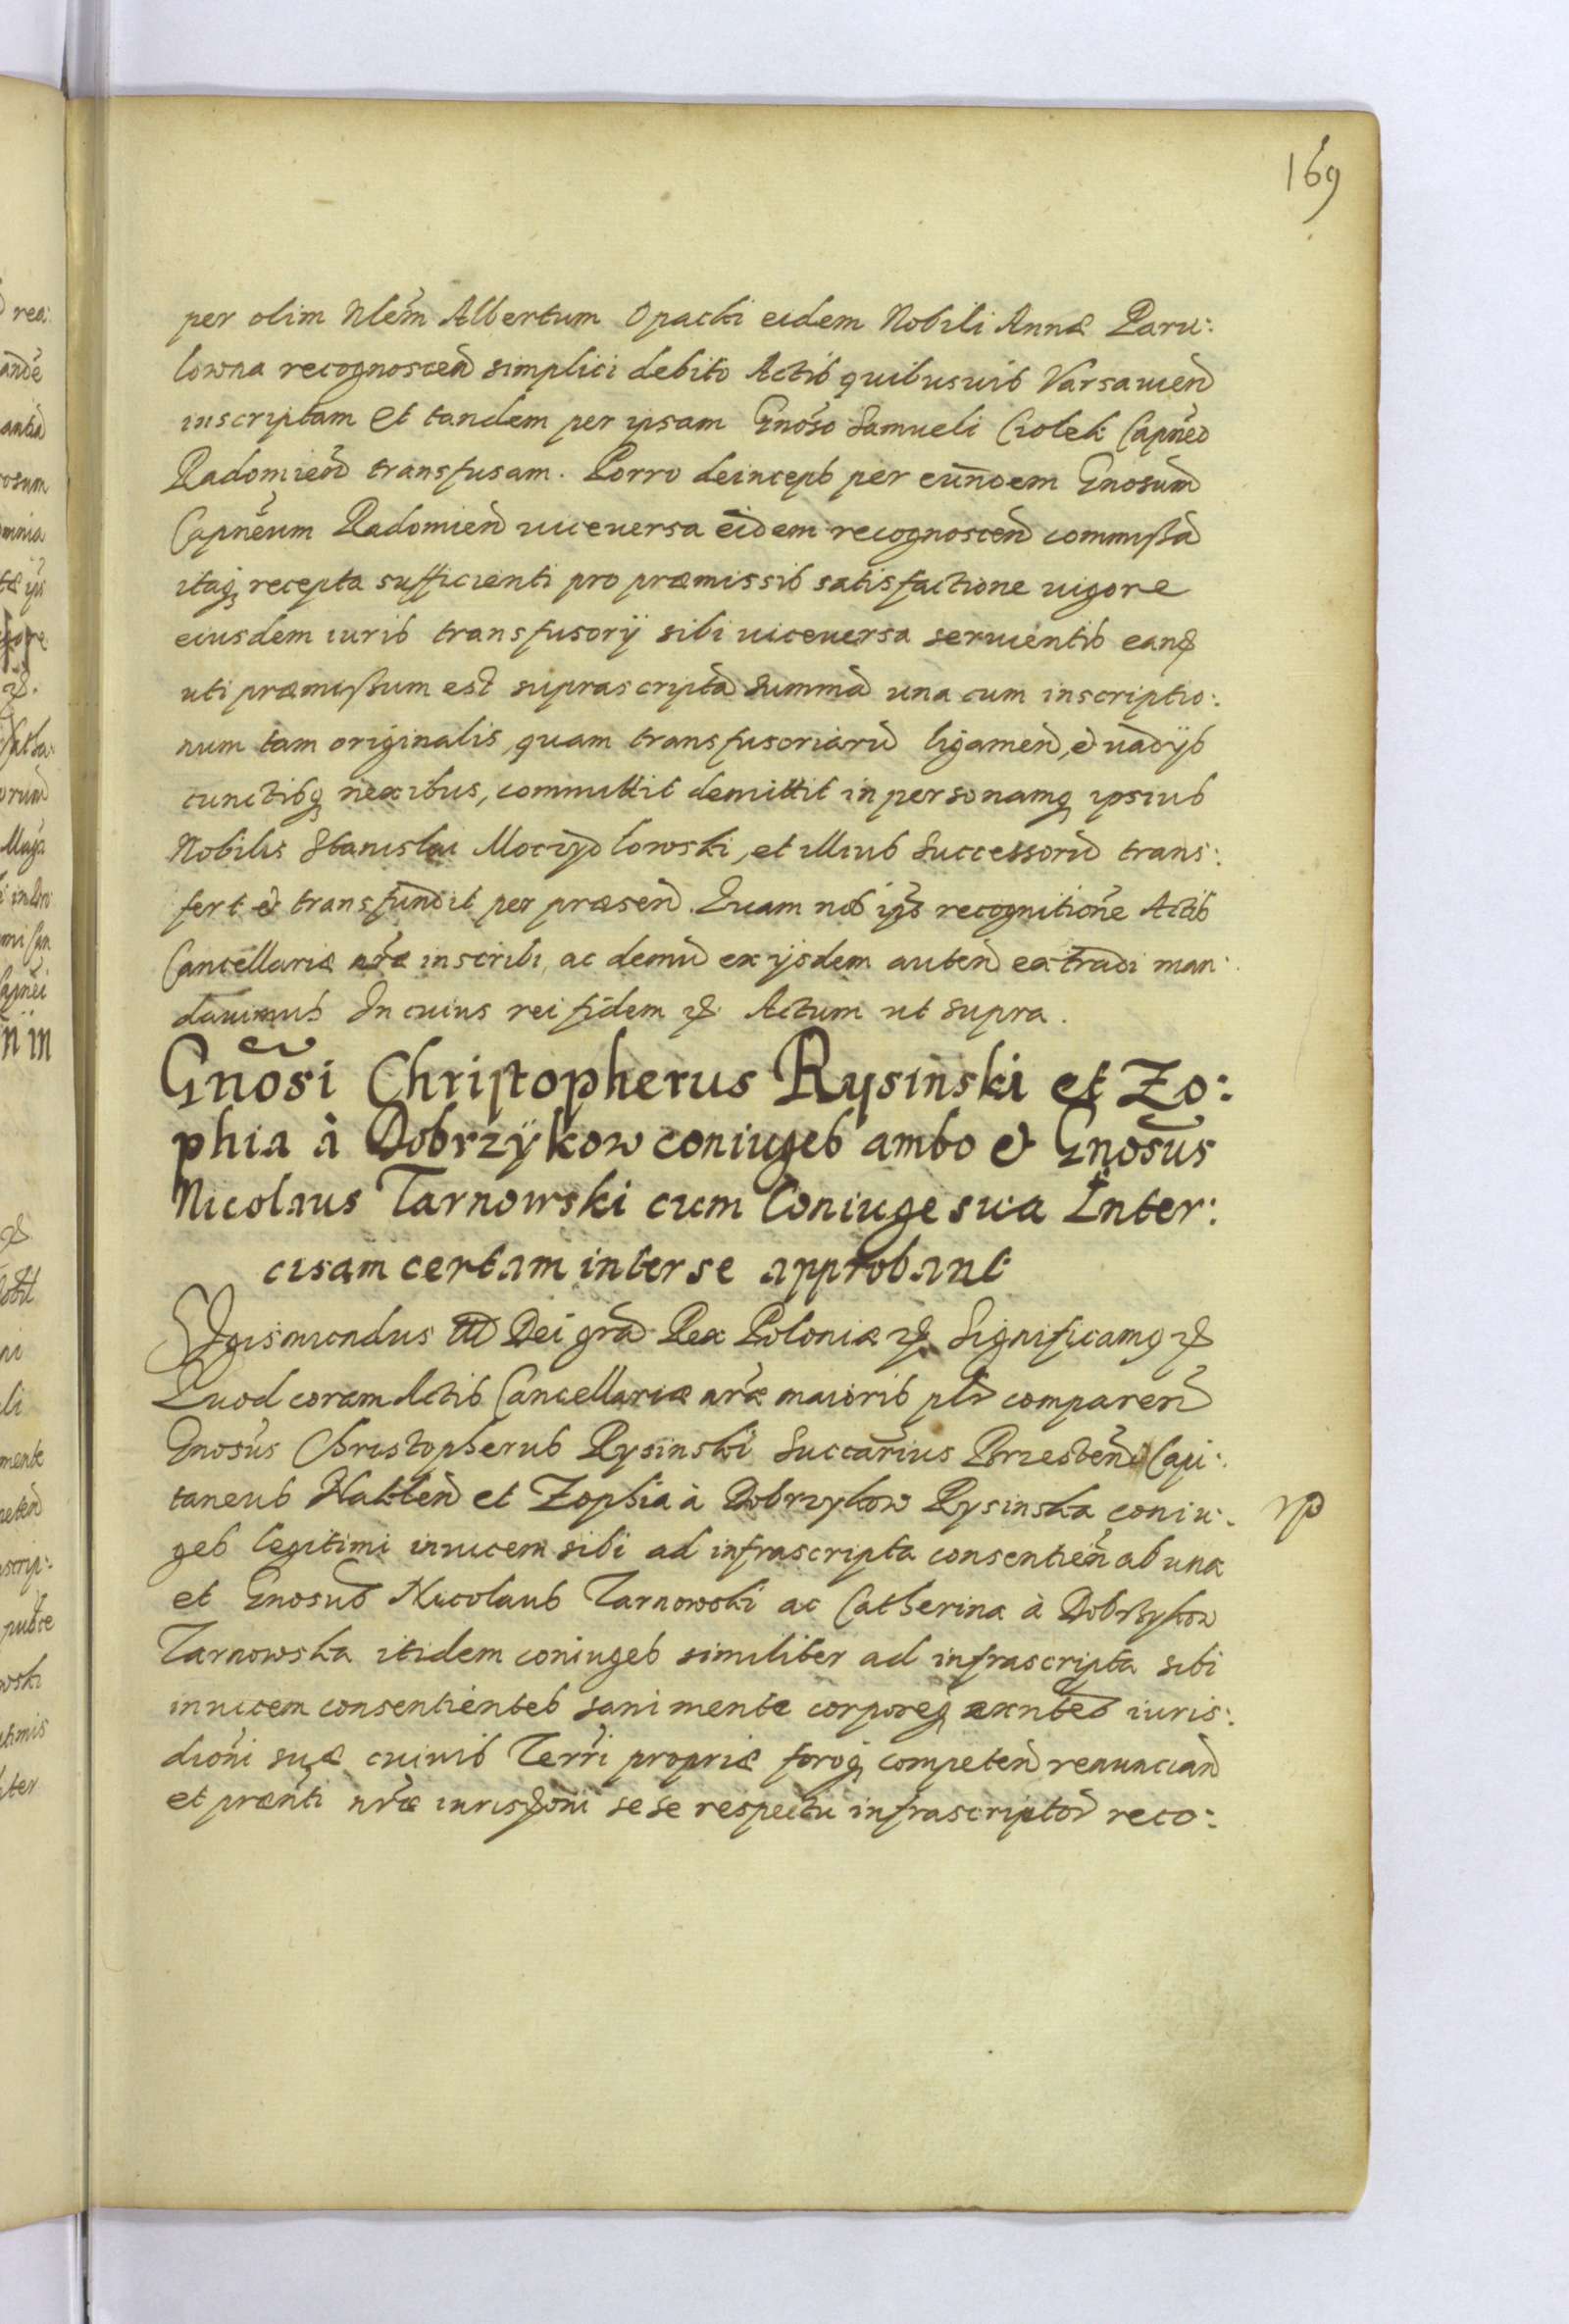 169
per olim Nlem Albertum Opacki eidem Nobili Annæ Paru:
lowna recognoscen simplici debito Actis quibusuis Varsauien
inscriptam et tandem per ipsam Gnoso Samueli Ciolek Capneo
Radomien transfusam. Porro deinceps per eundem Gnosum
Capneum Radomien uiceuersa eidem recognoscen commissa
itaq recepta sufficienti pro præmissis satisfactione uigore
eiusdem iuris transfusorij sibi uiceuersa seruientis eand
uti præmissum est suprascripta summa una cum inscriptio:
num tam originalis, quam transfusoriaru ligamen, & uadijs
cunctisq nexibus, committit demittit in personamq ipsius
Nobilis Stanislai Moczydlowski, et illius Successoru trans:
fert & transfundit per præsen. Quam nos ips recognitione Actis
Cancellariæ nræ inscribi, ac demu ex ijsdem auten extradi man:
dauimus In cuius rei fidem &. Actum ut supra.
Gnosi Christopherus Rysinski et Zo:
phia à Dobrzÿkow coniuges ambo & Gnosus
Nicolaus Tarnowski cum Coniuge sua Inter:
cisam certam inter se approbant
Sigismundus III Dei gra Rex Poloniæ & Significamq &
Quod coram Actis Cancellariæ nræ maioris plr comparen
Gnosus Christopherus Rysinski Succarius Brzesten Capi:
taneus et Zophia à Dobrzykow Rysinska coniu:
ges legitimi inuicem sibi ad infrascripta consentien ab una
et Gnosus Nicolaus Tarnowski ac Catherina à Dobrzykow
Tarnowska itidem coniuges similiter ad infrascripta sibi
inuicem consentientes sani mente corporeq exntes iuris:
dioni suæ cuiuis Terri propriæ foroq competen renuncian
et prænti nræ iurisdoni sese respectu infrascriptor reco: